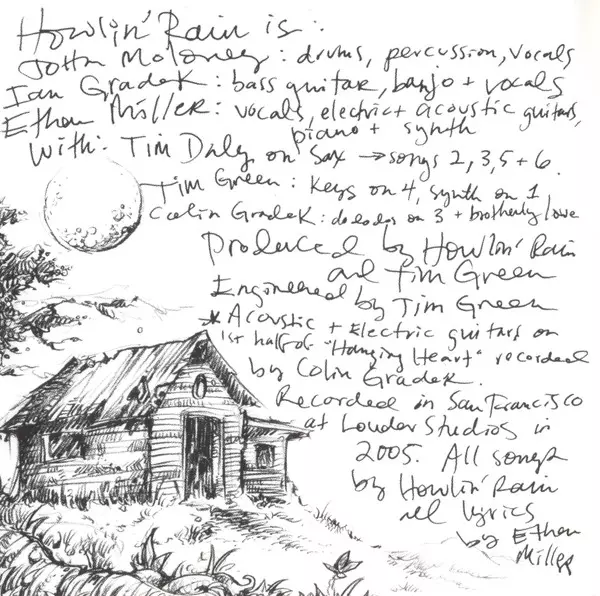 Howlin' Rain is:
John Moloney: drums, percussion, vocals
Ian Gradek: bass guitar, banjo + vocals
Ethan Miller: vocals, electric + acoustic guitars,
piano + synth
With: Tim Daly on Sax → songs 2, 3, 5 + 6.
Tim Green: Keys on 4, synth on 1
Colin Gradek: on 3 + brotherly love
Produced by Howlin' Rain
and Tim Green
Engineered by Tim Green
* Acoustic + Electric guitars on
1st half of "Hanging Heart" recorded
by Colin Gradek.
Recorded in San Francisco
at Louder Studios in
2005. All songs
by Howlin' Rain
all lyrics
by Ethan
Miller